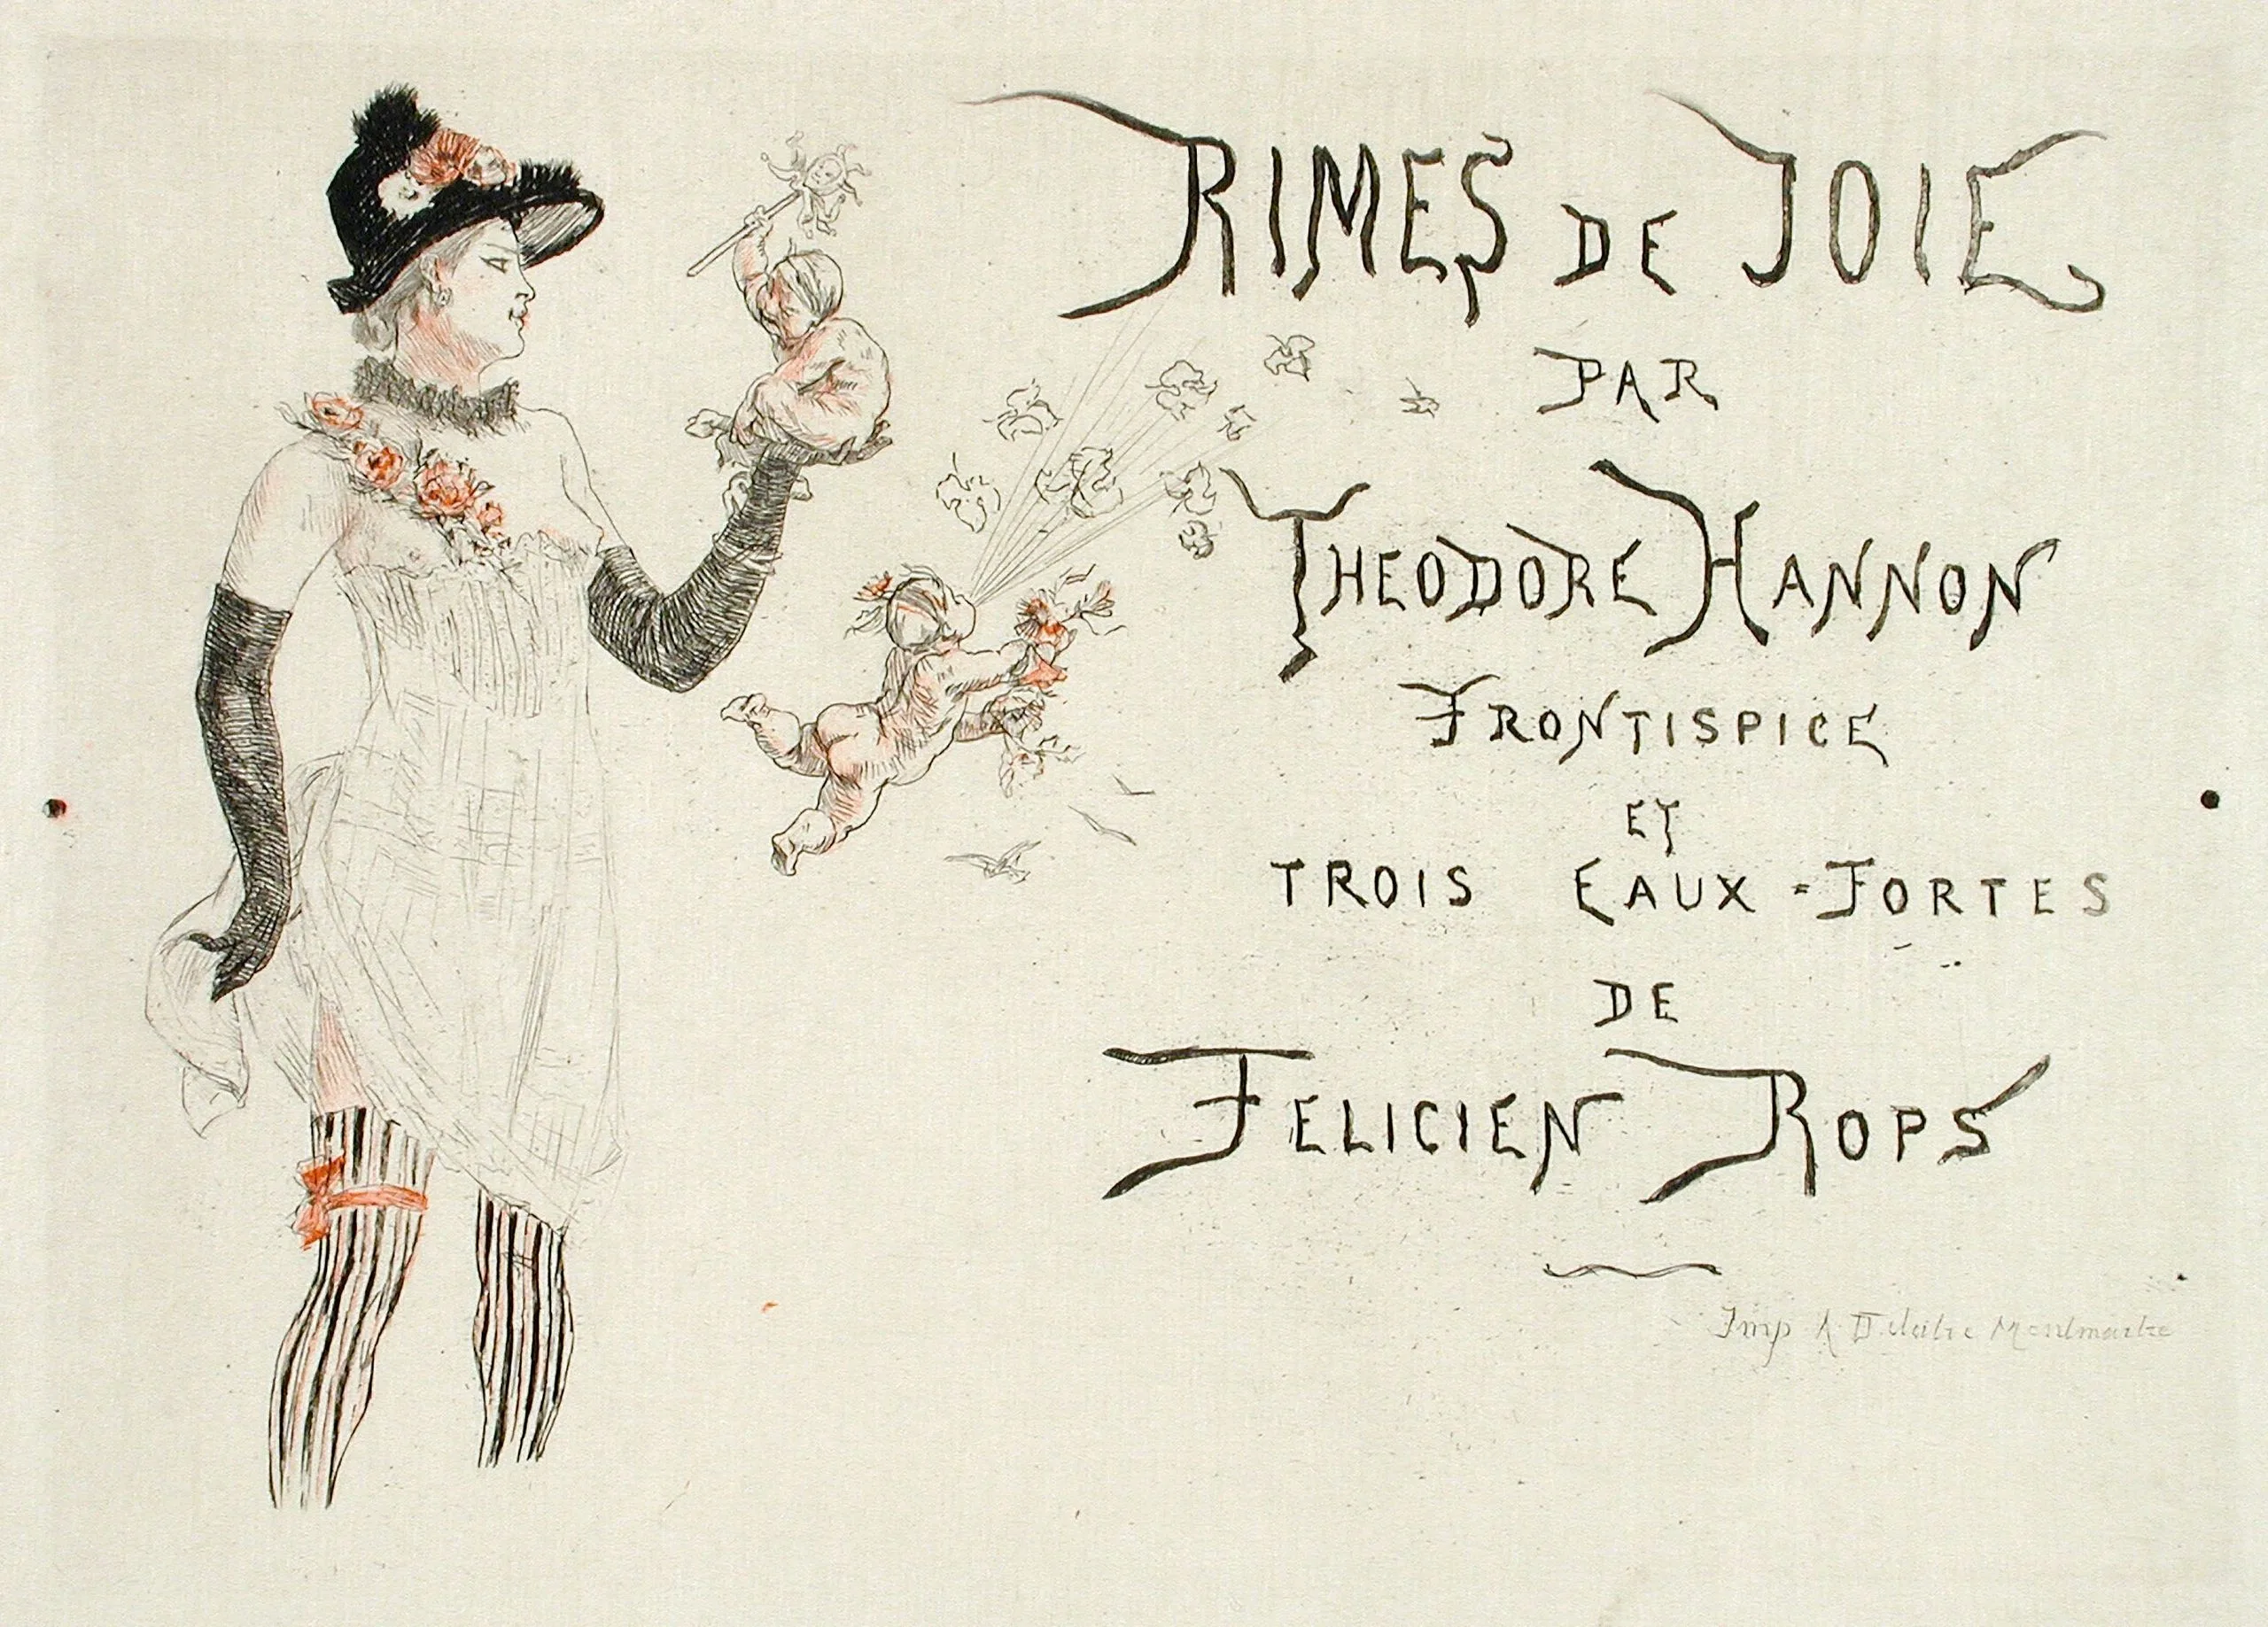 RIMES DE JOIE
PAR
THEODORE HANNON
FRONTISPICE
ET
TROIS EAUX-FORTES
DE
FELICIEN ROPS
Imp A Delatre Montmartre